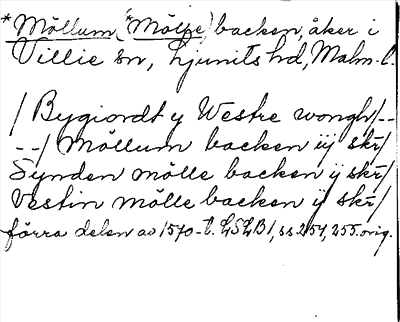 *Möllum (*Mölle) backen, åker i
Villie sn, Ljunits hd, Malm. l.
/ Bygiordt y Westre wongh/--
--/ Möllum backen iij skr/
Synden mölle backen ij skr/
Vestin mölle backen ij skr/
förra delen av 1570-t. LSLB1, ss 254, 255. orig.